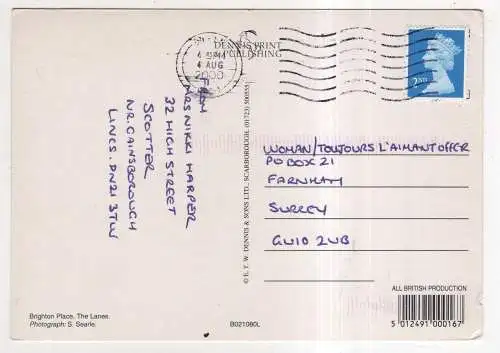 DENNIS PRINT
& PUBLISHING
4 AUG
2000
2ND
FROM
MRS NIKKI HARPER
32 HIGH STREET
SCOTTER
NR. GAINSBOROUGH
LINCS. DN21 3TW
© E. T. W. DENNIS & SONS LTD., SCARBOROUGH. (01723) 500555
WOMAN/TOUJOURS L'AIMANT OFFER
PO BOX 21
FARNHAM
SURREY
GU10 2UB
Brighton Place, The Lanes.
Photograph: S. Searle.
B021080L
ALL BRITISH PRODUCTION
5 012491 000167